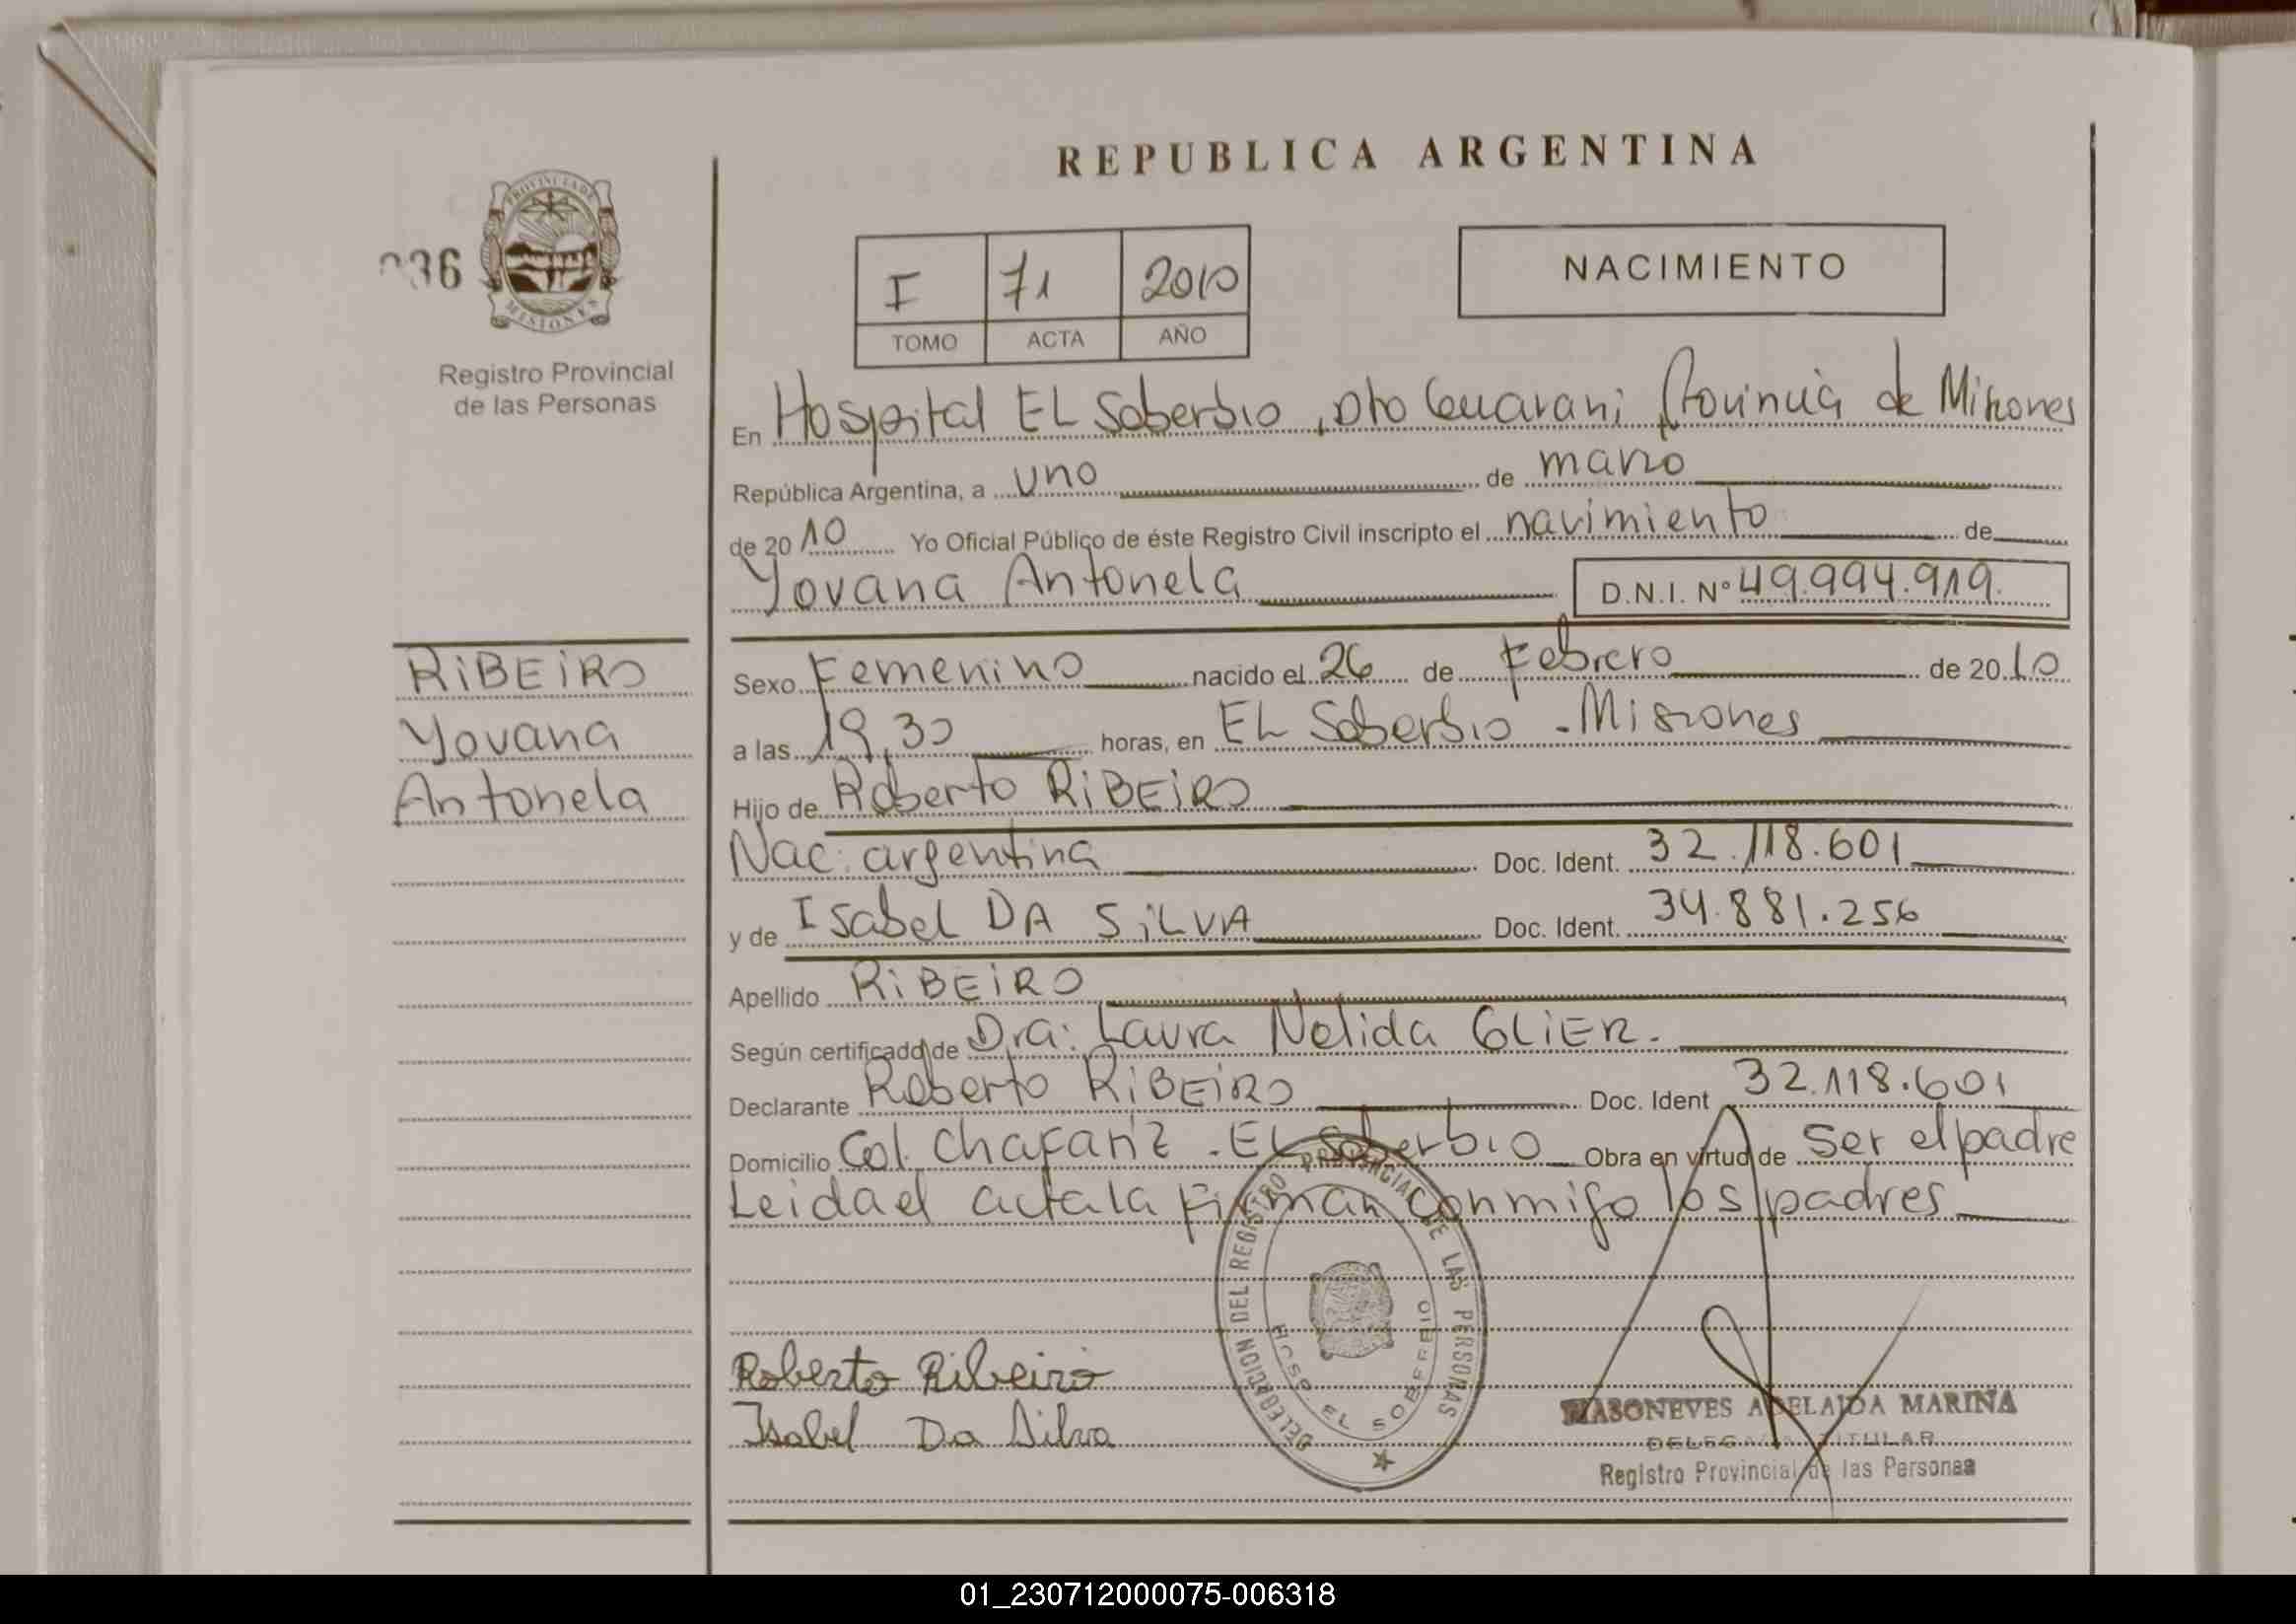 REPUBLICA ARGENTINA
PROVINCIA DE
MISIONES
036
Registro Provincial
de las Personas
I 71 2010
TOMO ACTA AÑO
NACIMIENTO
En Hospital EL Soberbio, Dto Guarani Provincia de Misiones
República Argentina, a uno de marzo
de 2010 Yo Oficial Público de éste Registro Civil inscripto el nacimiento de
Yovana Antonela D.N.I. Nº 49.994.919.
RiBEiRO
Yovana
Antonela
Sexo Femenino nacido el 26 de Febrero de 2010
a las 19,30 horas, en EL Soberbio - Misiones
Hijo de Roberto RiBEiRO
Nac: argentina Doc. Ident. 32.118.601
y de Isabel DA SiLVA Doc. Ident. 34.881.256
Apellido RiBEiRO
Según certificado de Dra: Laura Nelida GLiER.
Declarante Roberto RiBEiRO Doc. Ident 32.118.601
Domicilio Col. Chafariz - EL Soberbio Obra en virtud de Ser el padre
Leida el acta la firman conmigo los padres
DELEGACION DEL REGISTRO PROVINCIAL DE LAS PERSONAS
EL SOBERBIO
Roberto Ribeiro
Isabel Da Silva
ADELAIDA MARINA
DELEGADA TITULAR
Registro Provincial de las Personas
01_230712000075-006318